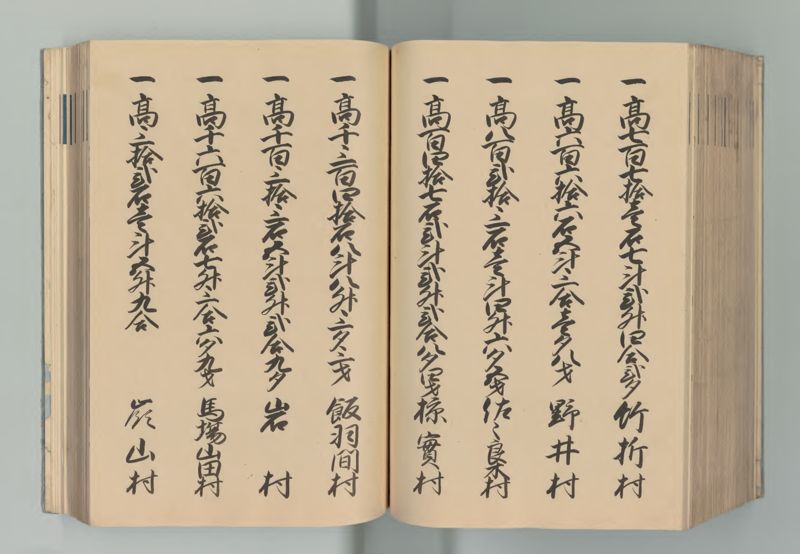 一 高七百七拾壱石七斗弐升四合弐夕 竹折村
一 高六百六拾六石五斗三合壱夕八才 野井村
一 高八百弐拾三石壱斗四升六夕五才 佐々良木村
一 高百四拾七石弐斗弐升弐合八夕四才 椋実村
一 高千三百四拾石八斗八升三夕三才 飯羽間村
一 高千百三拾三石五斗弐升弐合九夕 岩村
一 高千六百六拾弐石七升三合六夕九才 馬場山田村
一 高三拾弐石壱斗五升九合 山村